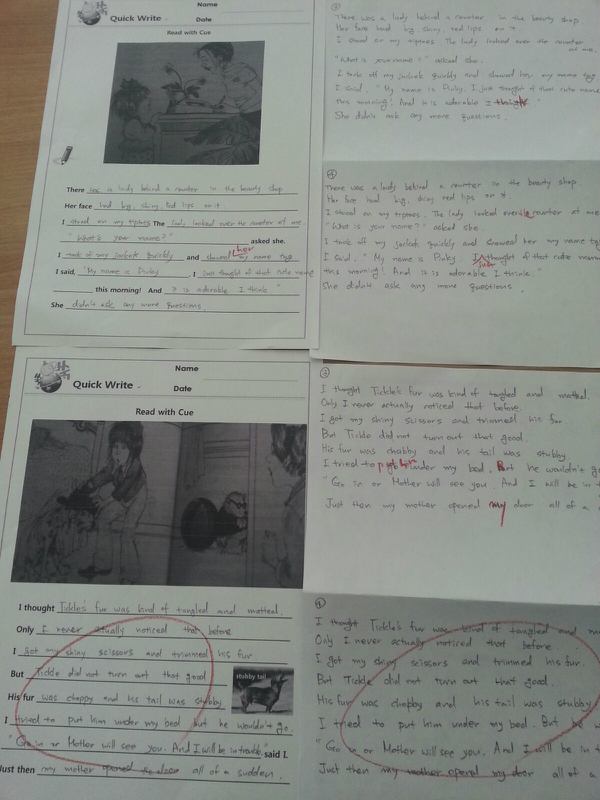 Name
Quick Write
Date
Read with Cue
There was a lady behind a counter in the beauty shop
Her face had big, shiny red lips on it.
I stood on my tiptoes The lady looked over the counter at me
"What's your name?" asked she.
I took of my jackets quickly and showed her my name tag
I said, "My name is Pinky. I just thought of that cute name
this morning! And it is adorable I think."
She didn't ask any more questions.
There was a lady behind a counter in the beauty shop.
Her face had big, shiny red lips on it.
I stood on my tiptoes. The lady looked over the counter
at me.
"What is your name?" asked she.
I took off my jackets quickly and showed her my name tag
I said. "My name is Pinky. I just thought of that cute name
this morning! And it is adorable I think."
She didn't ask any more questions.
④
There was a lady behind a counter in the beauty shop.
Her face had big, shiny red lips on it.
I stood on my tiptoes. The lady looked over counter at me
"What is your name?" asked she.
I took off my jackets quickly and showed her my name tag
I said. "My name is Pinky I just thought of that cute name
this morning! And it is adorable I think."
She didn't ask any more questions.
Name
Quick Write
Date
Read with Cue
I thought Tickle's fur was kind of tangled and matted.
Only I never actually noticed that before
I got my shiny scissors and trimmed his fur
But Tickle did not turn out that good
stubby tail
His fur was choppy and his tail was stubby
I tried to put him under my bed but he wouldn't go.
"Go in or Mother will see you. And I will be in trouble" said I.
Just then my mother opened the door all of a sudden.
③
I thought Tickle's fur was kind of tangled and matted.
Only I never actually noticed that before.
I got my shiny scissors and trimmed his fur
But Tickle did not turn out that good.
His fur was chabby and his tail was stubby.
I tried to put him under my bed. But he wouldn't go
"Go in or Mother will see you. And I will be in t
Just then my mother opened my door all of a s
④
I thought Tickle's fur was kind of tangled and m
Only I never actually noticed that before.
I got my shiny scissors and trimmed his fur.
But Tickle did not turn out that good.
His fur was choppy and his tail was stubby
I tried to put him under my bed. But he w
"Go in or Mother will see you. And I will be in t
Just then my mother opened my door all of a